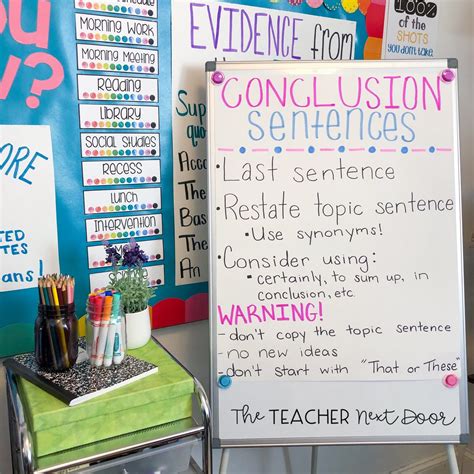 YOU
w?
ORE
ans!
Morning Work
Morning Meeting
Reading
Library
Social Studies
Recess
Lunch
Intervention
EVIDENCE from
100%
of the
SHOTS
you don't take.
CONCLUSION
sentences
•Last sentence
•Restate topic sentence
•Use synonyms!
•Consider using:
•certainly, to sum up, in
conclusion, etc.
WARNING!
-don't copy the topic sentence
-no new ideas
-don't start with "That or These"
The TEACHER Next Door